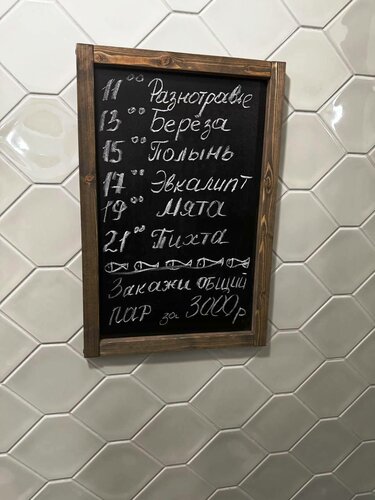 11⁰⁰ Разнотравье
13⁰⁰ Берёза
15⁰⁰ Полынь
17⁰⁰ Эвкалипт
19⁰⁰ Мята
21⁰⁰ Пихта
Закажи общий
пар за 3000р